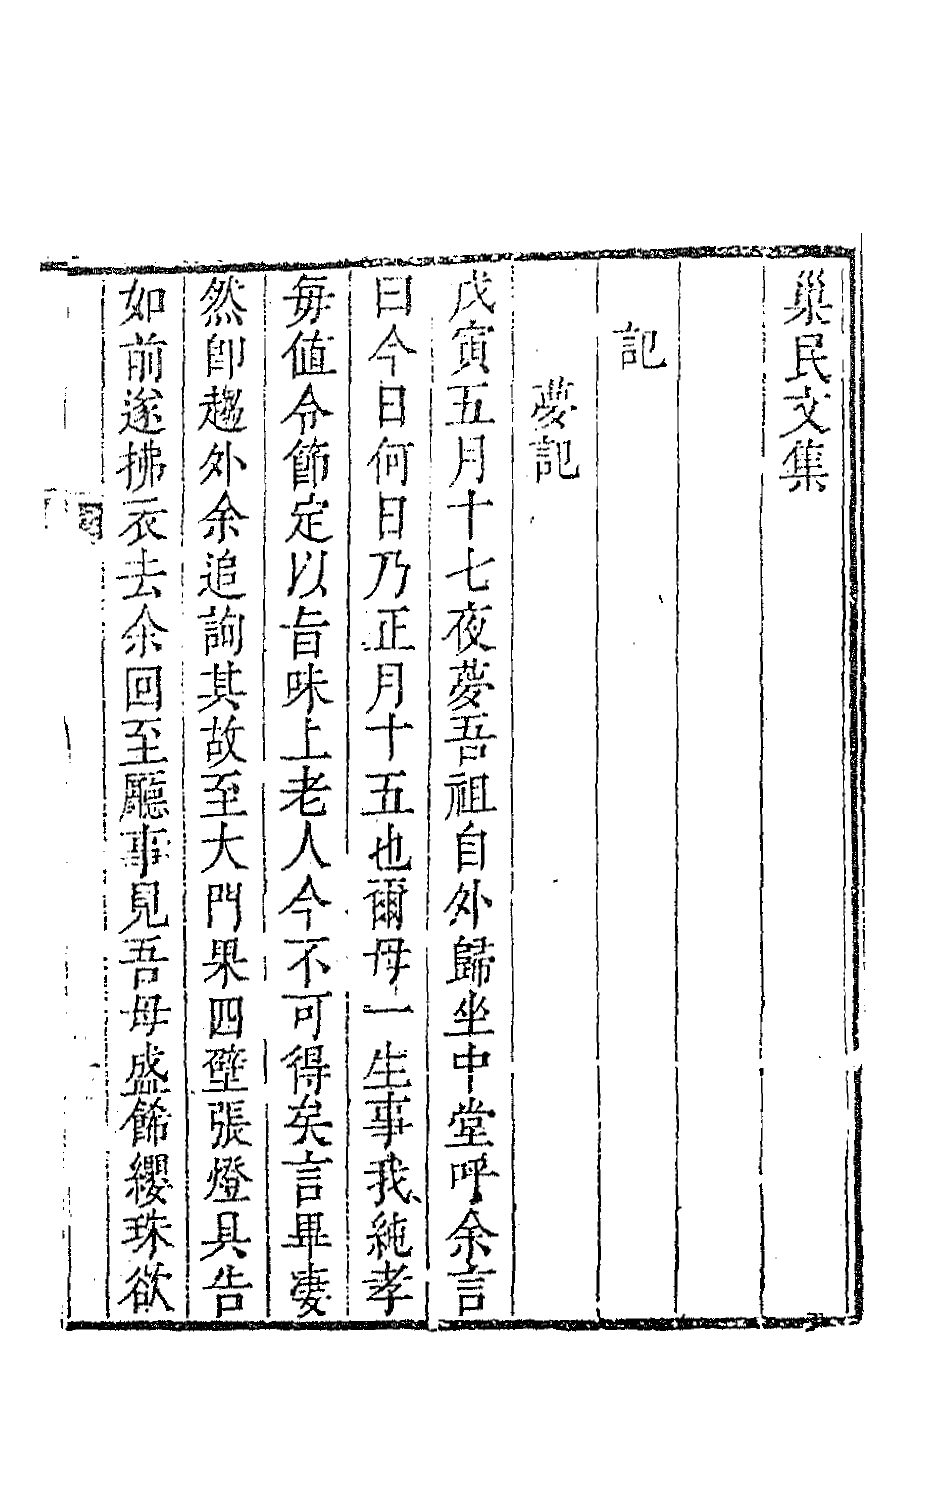 巢民文集
記
夢記
戊寅五月十七夜夢吾祖自外歸坐中堂呼余言
曰今日何日乃正月十五也爾母一生事我純孝
每值令節定以旨味上老人今不可得矣言畢淒
然卽趨外余追詢其故至大門果四壁張燈具告
如前遂拂衣去余回至廳事見吾母盛餙纓珠欲